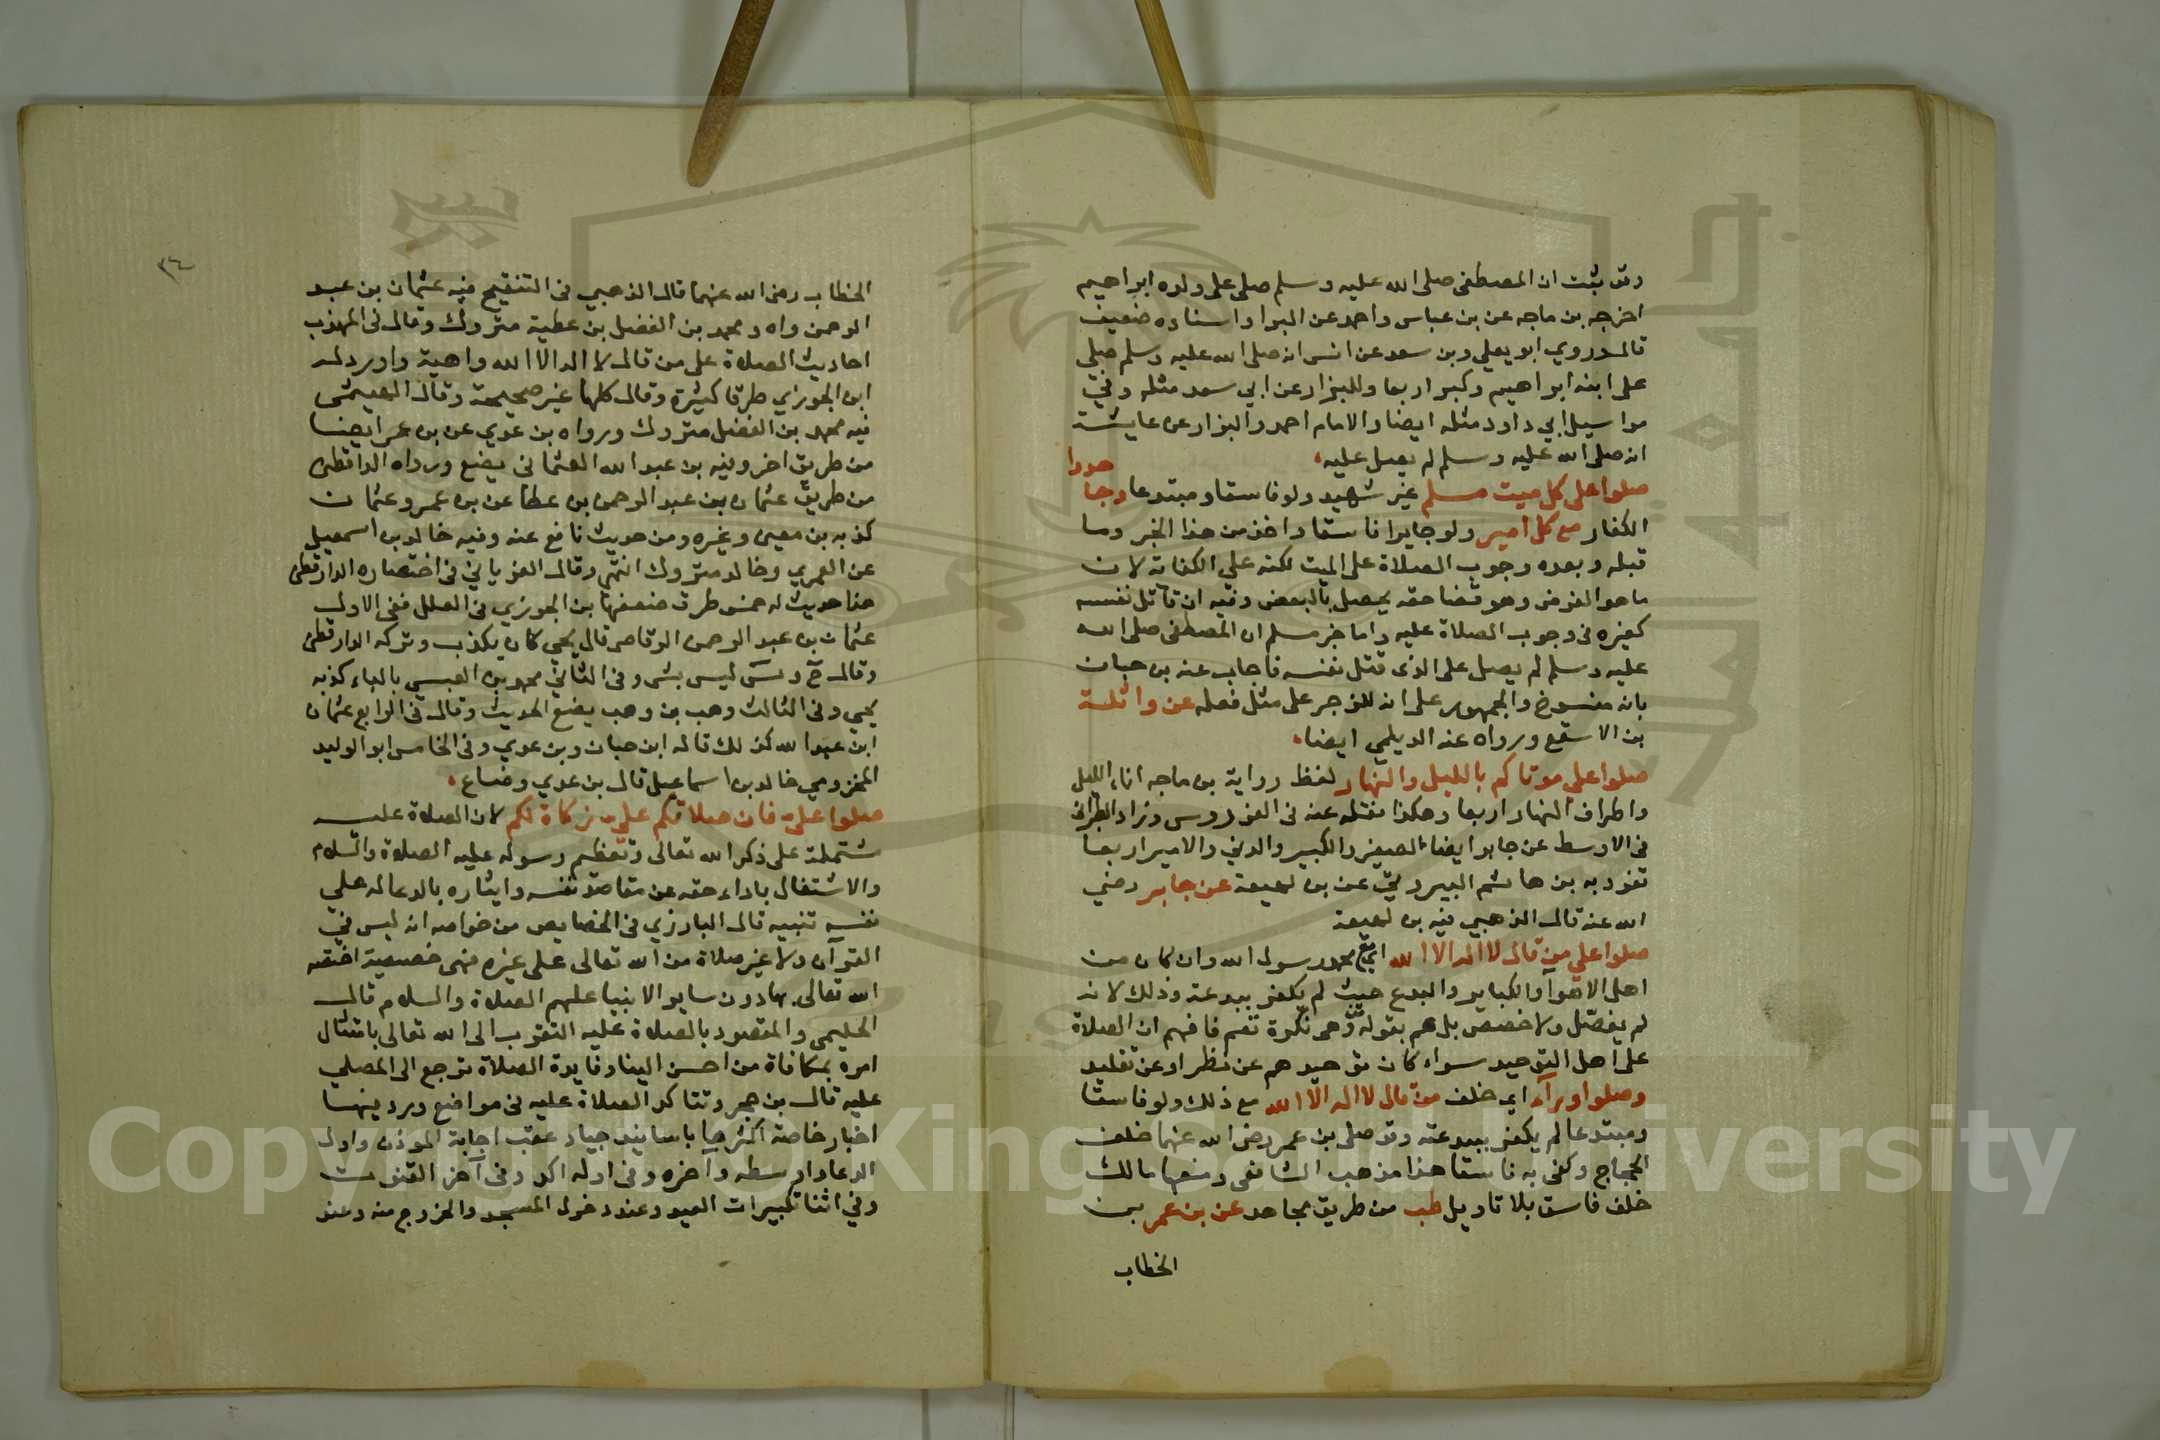 وقد ثبت ان المصطفى صلى الله عليه وسلم صلى على ولده ابراهيم
اخرجه بن ماجه عن بن عباس واحمد عن البرا واسناده ضعيف
قال وروي ابو يعلي وبن سعد عن انس انه صلى الله عليه وسلم صلى
على ابنه ابراهيم وكبر اربعا وللبزار عن ابي سعد مثله وفي
مراسيل ابي داود مثله ايضا والامام احمد والبزار عن عايشة
انه صلى الله عليه وسلم لم يصل عليه
صلوا على كل ميت مسلم غير شهيد ولو فاسقا ومبتدعا وجاهدوا
الكفار مع كل امير ولو جايرا فاسقا واخذ من هذا الخبر وما
قبله وبعده وجوب الصلاة على الميت لكنه علي الكفاية لان
ما هو الفرض وهو قضا حقه يحصل بالبعض وفيه ان قاتل نفسه
كغيره في وجوب الصلاة عليه واما خبر مسلم ان المصطفى صلى الله
عليه وسلم لم يصل على الذي قتل نفسه فاجاب عنه بن حبان
بانه منسوخ والجمهور على انه للزجر على مثل فعله عن واثلة
بن الاسقع ورواه عنه الديلمي ايضا
صلوا علي موتاكم بالليل والنهار لفظ رواية بن ماجه اناء الليل
واطراف النهار اربعا وهكذا نقله عنه في الفردوس وزاد الطبراني
في الاوسط عن جابر ايضا الصغير والكبير والدني والامير اربعا
تفرد به بن هاشم البيروتي عن بن لهيعة عن جابر رضي
الله عنه قال الذهبي فيه بن لهيعة
صلوا علي من قال لا اله الا الله اي مع محمد رسول الله وان كان من
اهل الاهوا والكباير والبدع حيث لم يكفر ببدعته وذلك لانه
لم يفصل ولا خصص بل عم بقوله من وهي نكرة تعم فافهم ان الصلاة
على اهل التوحيد سواء كان توحيدهم عن نظر او عن تقليد
وصلوا وراء اي خلف من قال لا اله الا الله مع ذلك ولو فاسقا
ومبتدعا لم يكفر ببدعته وقد صلى بن عمر رضي الله عنهما خلف
الحجاج وكفى به فاسقا هذا مذهب الشافعي ومنعها مالك
خلف فاسق بلا تاويل طب من طريق مجاهد عن بن عمر بن
الخطاب
٣٤
الخطاب رضي الله عنهما قال الذهبي في التنقيح فيه عثمان بن عبد
الرحمن واه ومحمد بن الفضل بن عطية متروك وقال في المهذب
احاديث الصلاة على من قال لا اله الا الله واهية واورد له
ابن الجوزي طرقا كثيرة وقال كلها غير صحيحة وقال الهيثمى
فيه محمد بن الفضل متروك ورواه بن عدي عن بن عمر ايضا
من طريق اخر وفيه بن عبد الله العثماني يضع ورواه الداقطني
من طريق عثمان بن عبد الرحمن بن عطا عن بن عمر وعثمان
كذبه بن معين وغيره ومن حديث نافع عنه وفيه خالد بن اسمعيل
عن العمري وخالد متروك انتهى وقال الغرياني في اختصاره الدارقطني
هذا حديث له خمس طرق ضعفها بن الجوزي في العلل ففي الاول
عثمان بن عبد الرحمن الوقاصي قال يحيى كان يكذب وتركه الدارقطني
وقال خ ون ليس بشى وفي الثاني محمد بن العبسي بالباء كذبه
يحيي وفي الثالث وهب بن وهب يضع الحديث وقال في الرابع عثمان
ابن عبد الله كذلك قاله ابن حبان وبن عدي وفي الخامس ابو الوليد
المخزومي خالد بن اسماعيل قال بن عدي وضاع
صلوا علي فان صلاتكم علي زكاة لكم لان الصلاة عليه
شتملة على ذكر الله تعالى وتعظيم رسوله عليه الصلاة والسلام
والاشتغال باداء حقه عن مقاصد نفسه وايثاره بالدعا له علي
نفسه تنبيه قال البارزي في الخصايص من خواصه انه ليس في
القرآن ولا غيره صلاة من الله تعالى على غيره فهى خصيصة اختصه
الله تعالى بها دون ساير الانبيا عليهم الصلاة والسلام قال
الحليمى والمقصود بالصلاة عليه التقرب الى الله تعالى بامتثال
امره بمكافاة من احسن الينا وفايدة الصلاة ترجع الى المصلي
عليه قال بن حجر وتتاكد الصلاة عليه في مواضع ورد فيها
اخبار خاصة اكثرها باسانيد جياد عقب اجابة الموذن واول
الدعا واوسطه وآخره وفي اوله اكد وفي آخر القنوت
وفي اثنا تكبيرات العيد وعند دخول المسجد والخروج منه وعند